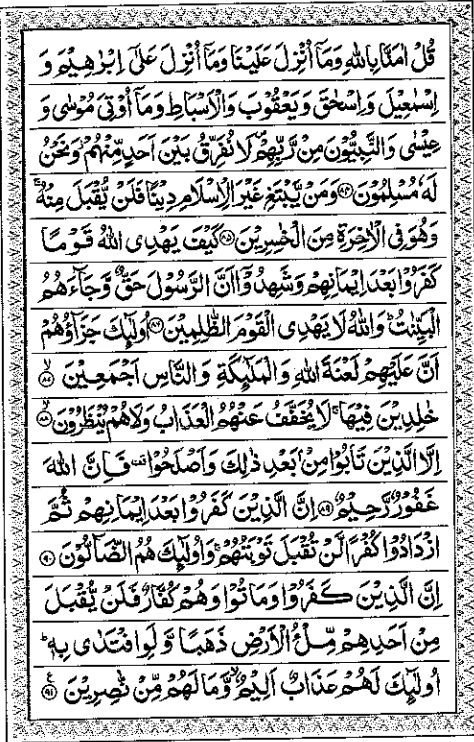 قُلْ اٰمَنَّا بِاللّٰهِ وَمَاۤ اُنْزِلَ عَلَيْنَا وَمَاۤ اُنْزِلَ عَلٰۤى اِبْرٰهِيْمَ وَ
اِسْمٰعِيْلَ وَاِسْحٰقَ وَيَعْقُوْبَ وَالْاَسْبَاطِ وَمَاۤ اُوْتِيَ مُوْسٰى وَ
عِيْسٰى وَالنَّبِيُّوْنَ مِنْ رَّبِّهِمْ لَا نُفَرِّقُ بَيْنَ اَحَدٍ مِّنْهُمْ وَنَحْنُ
لَهٗ مُسْلِمُوْنَ ﴿۸۴﴾ وَمَنْ يَّبْتَغِ غَيْرَ الْاِسْلَامِ دِيْنًا فَلَنْ يُّقْبَلَ مِنْهُ ۚ
وَهُوَ فِى الْاٰخِرَةِ مِنَ الْخٰسِرِيْنَ ﴿۸۵﴾ كَيْفَ يَهْدِى اللّٰهُ قَوْمًا
كَفَرُوْا بَعْدَ اِيْمَانِهِمْ وَشَهِدُوْۤا اَنَّ الرَّسُوْلَ حَقٌّ وَّجَآءَهُمُ
الْبَيِّنٰتُ ؕ وَاللّٰهُ لَا يَهْدِى الْقَوْمَ الظّٰلِمِيْنَ ﴿۸۶﴾ اُولٰٓئِكَ جَزَآؤُهُمْ
اَنَّ عَلَيْهِمْ لَعْنَةَ اللّٰهِ وَالْمَلٰٓئِكَةِ وَالنَّاسِ اَجْمَعِيْنَ ﴿۸۷﴾ ۙ
خٰلِدِيْنَ فِيْهَا ۚ لَا يُخَفَّفُ عَنْهُمُ الْعَذَابُ وَلَا هُمْ يُنْظَرُوْنَ ﴿۸۸﴾ ۙ
اِلَّا الَّذِيْنَ تَابُوْا مِنْۢ بَعْدِ ذٰلِكَ وَاَصْلَحُوْا ۫ فَاِنَّ اللّٰهَ
غَفُوْرٌ رَّحِيْمٌ ﴿۸۹﴾ اِنَّ الَّذِيْنَ كَفَرُوْا بَعْدَ اِيْمَانِهِمْ ثُمَّ
ازْدَادُوْا كُفْرًا لَّنْ تُقْبَلَ تَوْبَتُهُمْ ۚ وَاُولٰٓئِكَ هُمُ الضَّآلُّوْنَ ﴿۹۰﴾
اِنَّ الَّذِيْنَ كَفَرُوْا وَمَاتُوْا وَهُمْ كُفَّارٌ فَلَنْ يُّقْبَلَ
مِنْ اَحَدِهِمْ مِّلْءُ الْاَرْضِ ذَهَبًا وَّلَوِ افْتَدٰى بِهٖ ؕ
اُولٰٓئِكَ لَهُمْ عَذَابٌ اَلِيْمٌ ۙ وَّمَا لَهُمْ مِّنْ نّٰصِرِيْنَ ﴿۹۱﴾ ع